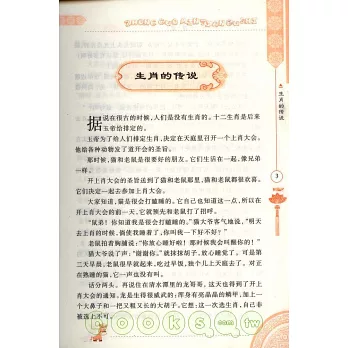 ZHONG GUO MIN JIAN GU SHI
生肖的传说
据说在很古的时候，人们是没有生肖的。十二生肖是后来
玉帝给排定的。
玉帝为了给人们排定生肖，决定在天庭里召开一个上肖大会，
他给各种动物发了道开会的圣旨。
那时候，猫和老鼠是很要好的朋友。它们生活在一起，像兄弟
一样。
开上肖大会的圣旨送到了猫和老鼠那里，猫和老鼠都很欢喜，
它们决定一起去参加上肖大会。
大家知道，猫是很会打瞌睡的。它自己也知道这一点，所以在
开上肖大会的前一天，它就预先和老鼠打了招呼。
“鼠弟！你知道我是很会打瞌睡的。”猫大爷客气地说，“明天
去上肖的时候，倘使我睡着了，你叫我一下好不好？”
老鼠拍着胸脯说：“你放心睡好啦！那时候我会叫醒你的！”
猫大爷说了声：“谢谢你。”就抹抹胡子，放心睡觉了。可是第
二天早晨，老鼠很早就起来，吃过早饭，独个儿上天庭去了。对正
在熟睡的猫，它一声也没有叫。
话分两头。再说住在清水潭里的龙哥哥，这天也得到了开上
肖大会的通知。龙是生得很威武的：浑身有亮晶晶的鳞甲，加上一
个大鼻子和一把又粗又长的大胡子。它想：这一次选生肖，自己非
被选上不可。
生肖的传说
3
books.com.tw